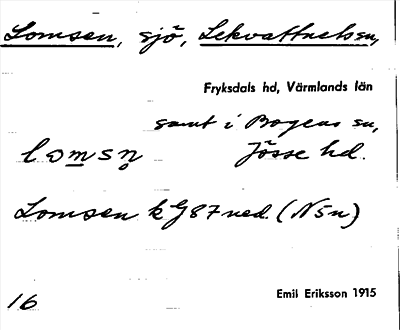 Lomsen, sjö, Lekvattnets sn,
Fryksdals hd, Värmlands län
samt i Bogens sn,
lomsn̥ Jösse hd.
Lomsen k G 87 ned. (N5n)
Emil Eriksson 1915
16